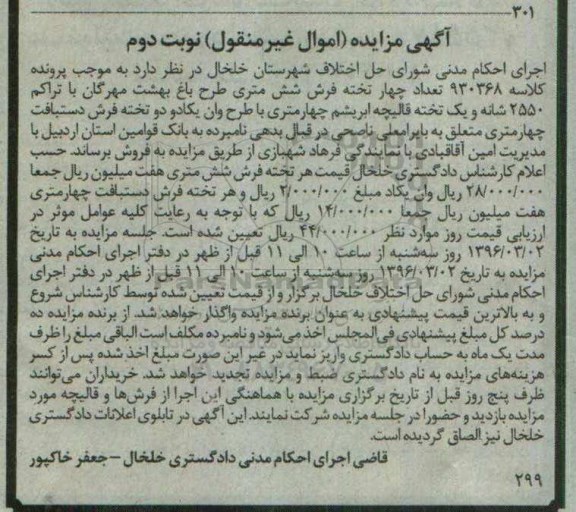 ۳۰۱
آگهی مزایده (اموال غیر منقول) نوبت دوم
اجرای احکام مدنی شورای حل اختلاف شهرستان خلخال در نظر دارد به موجب پرونده
کلاسه ۹۳۰۳۶۸ تعداد چهار تخته فرش شش متری طرح باغ بهشت مهرگان با تراکم
۲۵۵۰ شانه و یک تخته قالیچه ابریشم چهارمتری با طرح وان یکادو دو تخته فرش دستبافت
چهارمتری متعلق به بایرامعلی ناصحی در قبال بدهی نامبرده به بانک قوامین استان اردبیل با
مدیریت امین آقاقبادی با نمایندگی فرهاد شهبازی از طریق مزایده به فروش برساند. حسب
اعلام کارشناس دادگستری خلخال قیمت هر تخته فرش شش متری هفت میلیون ریال جمعا
۲۸/۰۰۰/۰۰۰ ریال وان یکاد مبلغ ۲/۰۰۰/۰۰۰ ریال و هر تخته فرش دستبافت چهارمتری
هفت میلیون ریال جمعا ۱۴/۰۰۰/۰۰۰ ریال که با توجه به رعایت کلیه عوامل موثر در
ارزیابی قیمت روز موارد نظر ۴۴/۰۰۰/۰۰۰ ریال تعیین شده است. جلسه مزایده به تاریخ
۱۳۹۶/۰۳/۰۲ روز سه‌شنبه از ساعت ۱۰ الی ۱۱ قبل از ظهر در دفتر اجرای احکام مدنی
مزایده به تاریخ ۱۳۹۶/۰۳/۰۲ روز سه‌شنبه از ساعت ۱۰ الی ۱۱ قبل از ظهر در دفتر اجرای
احکام مدنی شورای حل اختلاف خلخال برگزار و از قیمت تعیین شده توسط کارشناس شروع
و به بالاترین قیمت پیشنهادی به عنوان برنده مزایده واگذار خواهد شد. از برنده مزایده ده
درصد کل مبلغ پیشنهادی فی‌المجلس اخذ می‌شود و نامبرده مکلف است الباقی مبلغ را ظرف
مدت یک ماه به حساب دادگستری واریز نماید در غیر این صورت مبلغ اخذ شده پس از کسر
هزینه‌های مزایده به نام دادگستری ضبط و مزایده تجدید خواهد شد. خریداران می‌توانند
ظرف پنج روز قبل از تاریخ برگزاری مزایده با هماهنگی این اجرا از فرش‌ها و قالیچه مورد
مزایده بازدید و حضورا در جلسه مزایده شرکت نمایند. این آگهی در تابلوی اعلانات دادگستری
خلخال نیز الصاق گردیده است.
قاضی اجرای احکام مدنی دادگستری خلخال – جعفر خاکپور
۲۹۹